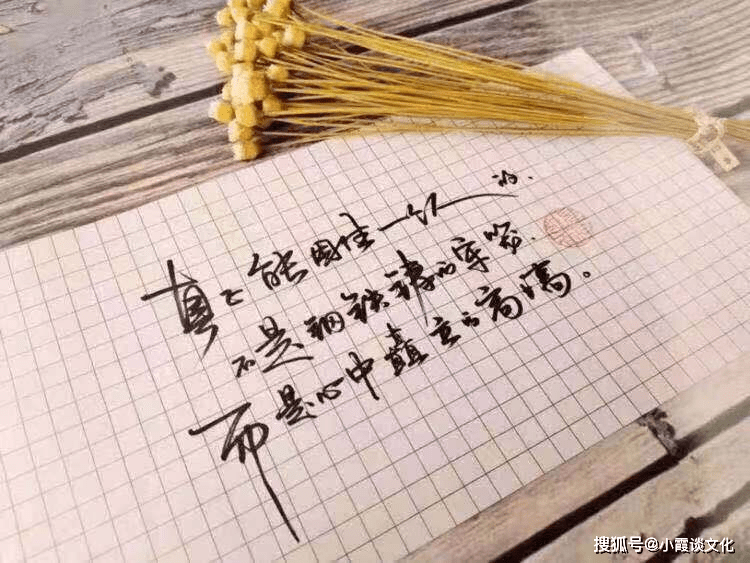 真正能困住一个人的，
不是钢铁铸的牢笼，
而是心中矗立的高墙。
搜狐号@小霞谈文化